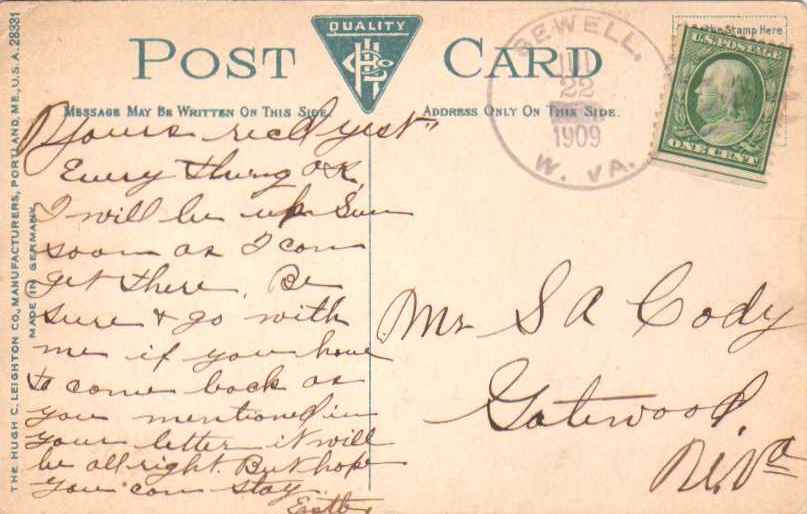 THE HUGH C. LEIGHTON CO., MANUFACTURERS, PORTLAND, ME., U.S.A. 28381
MADE IN GERMANY
QUALITY
POST CARD
MESSAGE MAY BE WRITTEN ON THIS SIDE.
ADDRESS ONLY ON THIS SIDE.
Stamp Here
SEWELL.
22
1909
W. VA.
U.S. POSTAGE
ONE CENT
Yours recd yest"
Every thing OK
I will be up Sun
soon as I can
get there. Be
sure & go with
me if you have
to come back as
you mentioned in
your letter it will
be all right. But hope
you can stay
Mr S A Cody
Gatewood,
W. Va